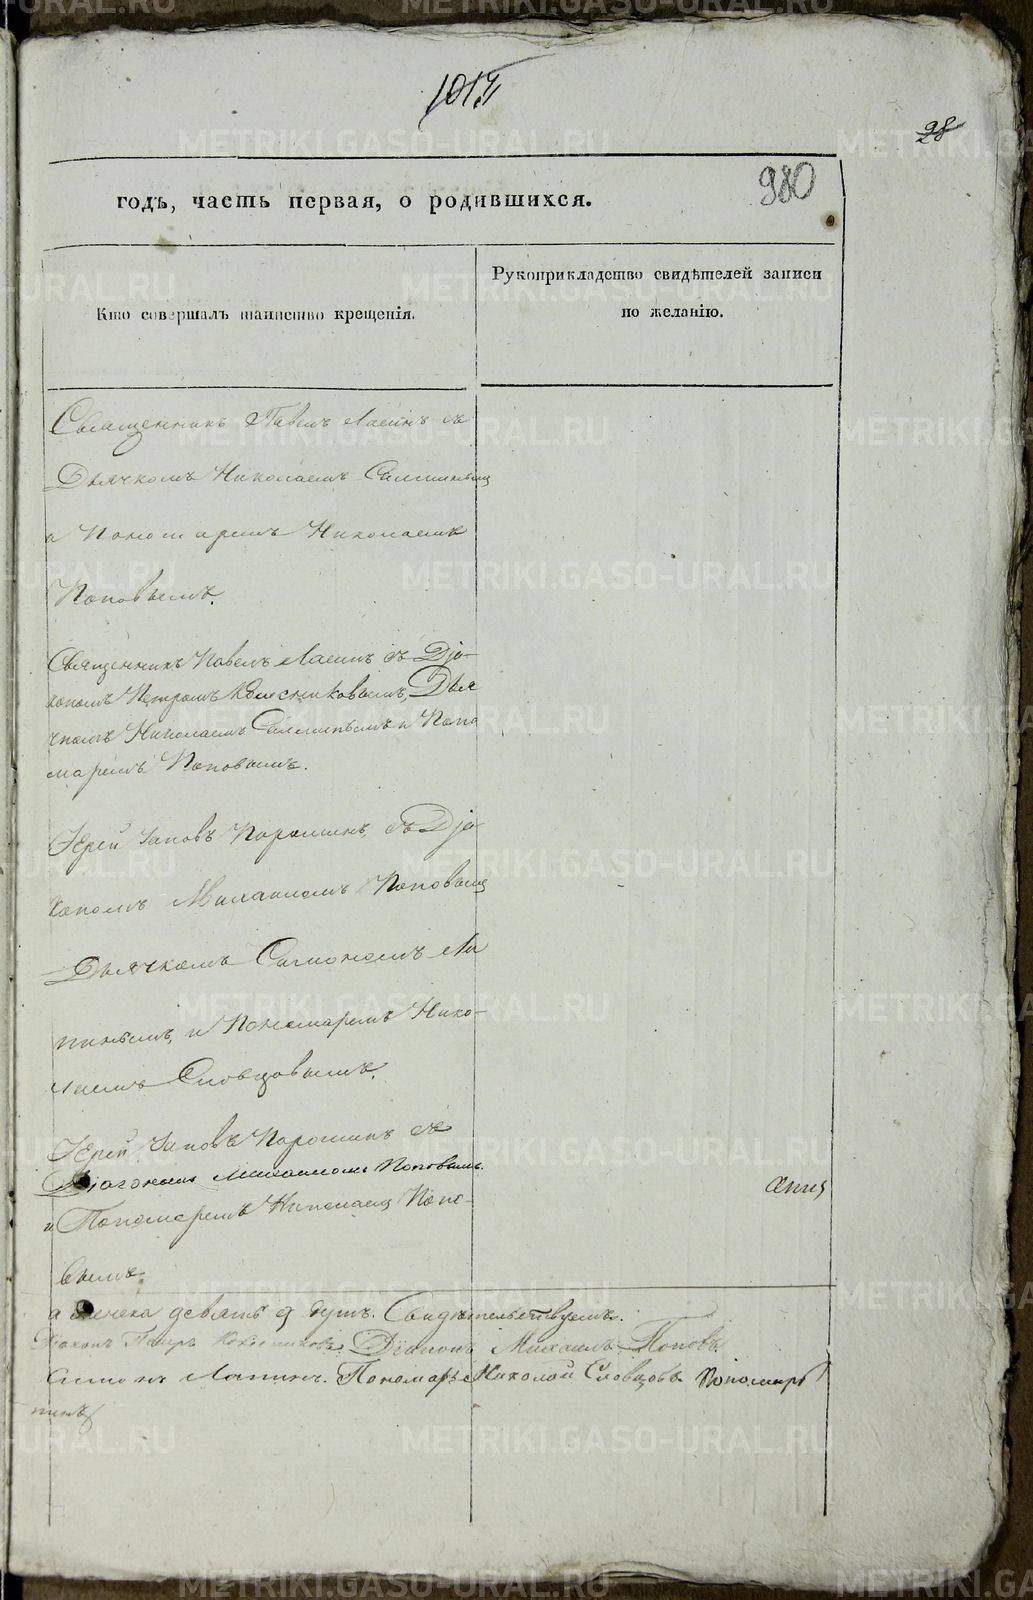 28
980
годъ, часть первая, о родившихся.
Кто совершалъ таинство крещенія.
Рукоприкладство свидѣтелей записи
по желанію.
Священникъ Павелъ съ
Дьячкомъ Николаемъ
и Пономаремъ Николаемъ
Поповымъ.
Священникъ Павелъ съ Діа-
кономъ Петромъ Колесниковымъ, Дья
чкомъ Николаемъ и Поно
маремъ Поповымъ.
Іерей Іаковъ Порошинъ, съ Діа
кономъ Михаиломъ Поповымъ
Дьячкомъ Симономъ Ла
пинымъ, и Пономаремъ Нико-
лаемъ Словцовымъ.
Іерей Іаковъ Порошинъ съ
Діакономъ Михаиломъ Поповымъ
и Пономаремъ Николаемъ Попо-
вымъ
девять 9 душъ. Свидѣтельствуемъ.
Діаконъ Петръ Колесниковъ. Діаконъ Михаилъ Поповъ
Симонъ Лапинъ. Пономарь Николай Словцовъ Пономарь
METRIKI.GASO-URAL.RU